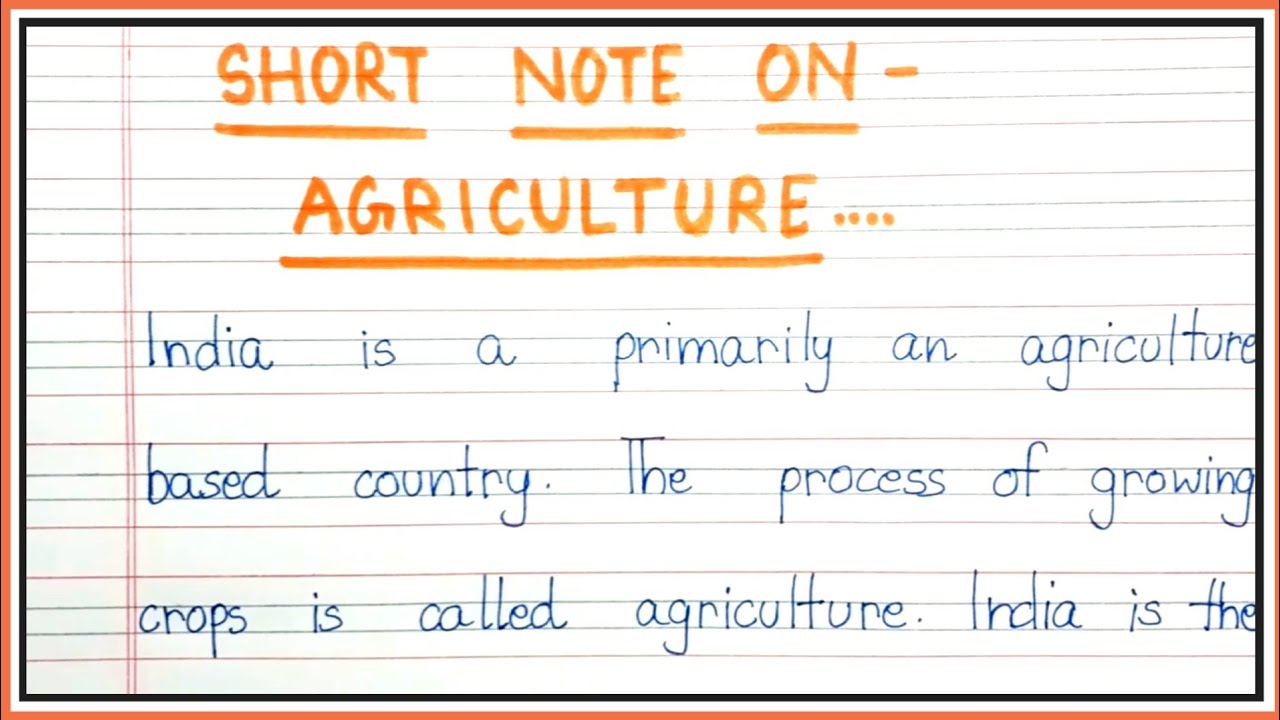 SHORT NOTE ON -
AGRICULTURE....
India is a primarily an agriculture
based country. The process of growing
crops is called agriculture. India is the